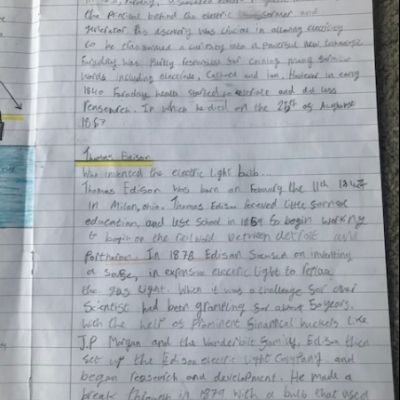 the person behind the electric and
generator this discovery was crucial in allowing electricity
to be transformed a curiosity into a powerful new technology
Faraday was Partly responsible for coining many familiar
words including electrode, Cathode and Ion. However in early
1840 Faraday health started to deteriorate and did less
Research. In which he died on the 25th of August
1867
Thomas Edison
Who invented the electric Light bulb...
Thomas Edison was born on February the 11th 1847
in Milan, ohio. Thomas Edison received little formal
education, and left School in 1859 to begin working
to begin on the railroad between detroit and
In 1878 Edison focused on inventing
a safe, in expensive electric light to replace
the gas light. When it was a challenge for over
Scientist had been grappling for about 50 years.
With the help of Prominent financial backers Like
J.P Morgan and the Vanderbilt family, Edison then
set up the Edison electric Light Company and
began research and development. He made a
break through in 1879 with a bulb that used